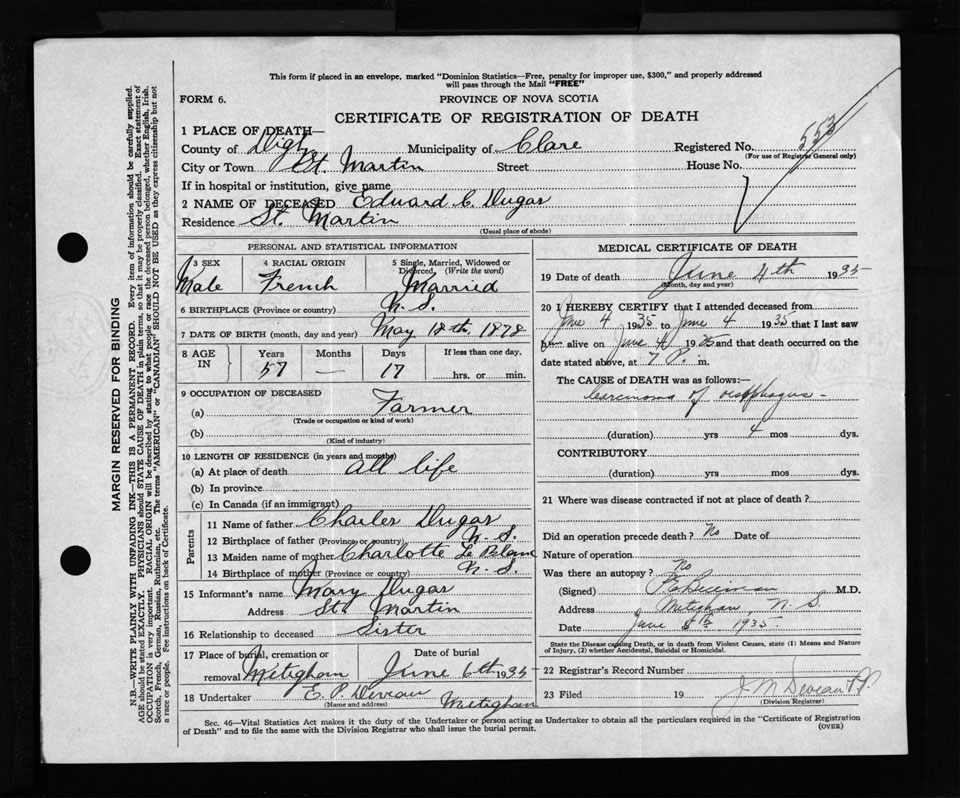 This form if placed in an envelope, marked "Dominion Statistics—Free, penalty for improper use, $300," and properly addressed
will pass through the Mail "FREE"
FORM 6.
PROVINCE OF NOVA SCOTIA
CERTIFICATE OF REGISTRATION OF DEATH
1 PLACE OF DEATH—
County of Digby Municipality of Clare Registered No. 553
(For use of Registrar General only)
City or Town St. Martin Street House No.
If in hospital or institution, give name
2 NAME OF DECEASED Eduard C. Dugas
Residence St. Martin
(Usual place of abode)
PERSONAL AND STATISTICAL INFORMATION
3 SEX 4 RACIAL ORIGIN 5 Single, Married, Widowed or
Divorced, (Write the word)
Male French Married
6 BIRTHPLACE (Province or country) N. S.
7 DATE OF BIRTH (month, day and year) May 18th, 1878
8 AGE IN Years Months Days If less than one day,
57 — 17 hrs. or min.
9 OCCUPATION OF DECEASED
(a) Farmer
(Trade or occupation or kind of work)
(b)
(Kind of industry)
10 LENGTH OF RESIDENCE (in years and months)
(a) At place of death all life
(b) In province
(c) In Canada (if an immigrant)
Parents
11 Name of father Charles Dugas
12 Birthplace of father (Province or country) N. S.
13 Maiden name of mother Charlotte Le Blanc
14 Birthplace of mother (Province or country) N. S.
15 Informant's name Mary Dugas
Address St. Martin
16 Relationship to deceased Sister
17 Place of burial, cremation or Date of burial
removal Metighan June 6th 1935
18 Undertaker E. P. Deveau Metighan
(Name and address)
MEDICAL CERTIFICATE OF DEATH
19 Date of death June 4th 1935
(Month, day and year)
20 I HEREBY CERTIFY that I attended deceased from
June 4 1935 to June 4 1935 that I last saw
him alive on June 4 1935 and that death occurred on the
date stated above, at 7 P. m.
The CAUSE OF DEATH was as follows:—
Carcinoma of oesophagus -
(duration) yrs 4 mos dys.
CONTRIBUTORY
(duration) yrs mos dys.
21 Where was disease contracted if not at place of death?
Did an operation precede death? No Date of
Nature of operation
Was there an autopsy? No
(Signed) M.D.
Address Metighan, N. S.
Date June 5th 1935
State the Disease causing Death, or in death from Violent Causes, state (1) Means and Nature
of Injury, (2) whether Accidental, Suicidal or Homicidal.
22 Registrar's Record Number
23 Filed 19 J M Deveau
(Division Registrar)
Sec. 46—Vital Statistics Act makes it the duty of the Undertaker or person acting as Undertaker to obtain all the particulars required in the "Certificate of Registration
of Death" and to file the same with the Division Registrar who shall issue the burial permit.
(OVER)
MARGIN RESERVED FOR BINDING
N.B.—WRITE PLAINLY WITH UNFADING INK—THIS IS A PERMANENT RECORD. Every item of information should be carefully supplied.
AGE should be stated EXACTLY. PHYSICIANS should STATE CAUSE OF DEATH in plain terms, so that it may be properly classified. Exact statement of
OCCUPATION is very important. RACIAL ORIGIN will be described by stating to what people or race the deceased person belonged, whether English, Irish,
Scotch, French, German, Russian, Ruthenian, etc. The terms "AMERICAN" or "CANADIAN" SHOULD NOT BE USED as they express citizenship but not
a race or people. See instructions on back of Certificate.